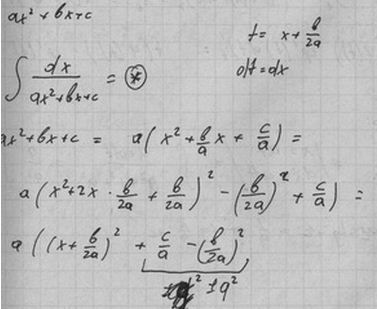 ax² + bx + c
t = x + b/2a
dt = dx
∫ dx/(ax² + bx + c) = (*)
ax² + bx + c = a(x² + b/a x + c/a) =
a(x² + 2x · b/2a + b/2a)² − (b/2a)² + c/a) =
a((x + b/2a)² + c/a − (b/2a)²
±q²